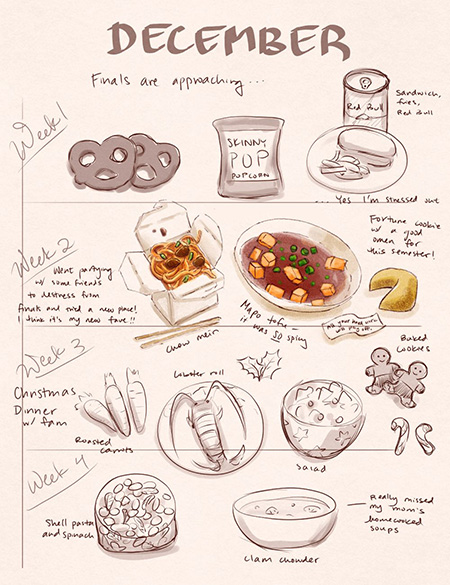 DECEMBER
Finals are approaching...
Week 1
SKINNY
POP
POPCORN
Red Bull
Sandwich,
fries,
Red Bull
... Yes I'm stressed out
Week 2
Went partying
w/ some friends
to destress from
finals and tried a new place!
I think it's my new fave!!
chow mein
Mapo tofu -
it was SO spicy
Fortune cookie
w/ a good
omen for
this semester!
All your hard work
will pay off.
Week 3
Christmas
Dinner
w/ fam
Roasted
carrots
lobster roll
salad
Baked
Cookies
Week 4
Shell pasta
and spinach
clam chowder
Really missed
my mom's
homecooked
soups